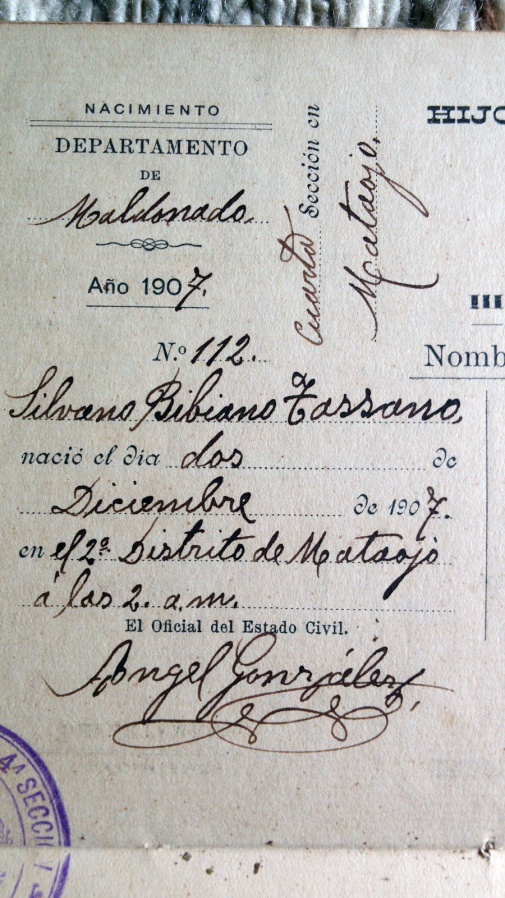 NACIMIENTO
DEPARTAMENTO
DE
Maldonado.
Año 1907.
Cuarta Sección en
Mataojo.
HIJO
III
Nomb
N.º 112.
Silvano Bibiano Tassano,
nació el día dos de
Diciembre de 1907.
en el 2º Distrito de Mataojo
á las 2. a.m.
El Oficial del Estado Civil.
Angel González,
4ª SECCI